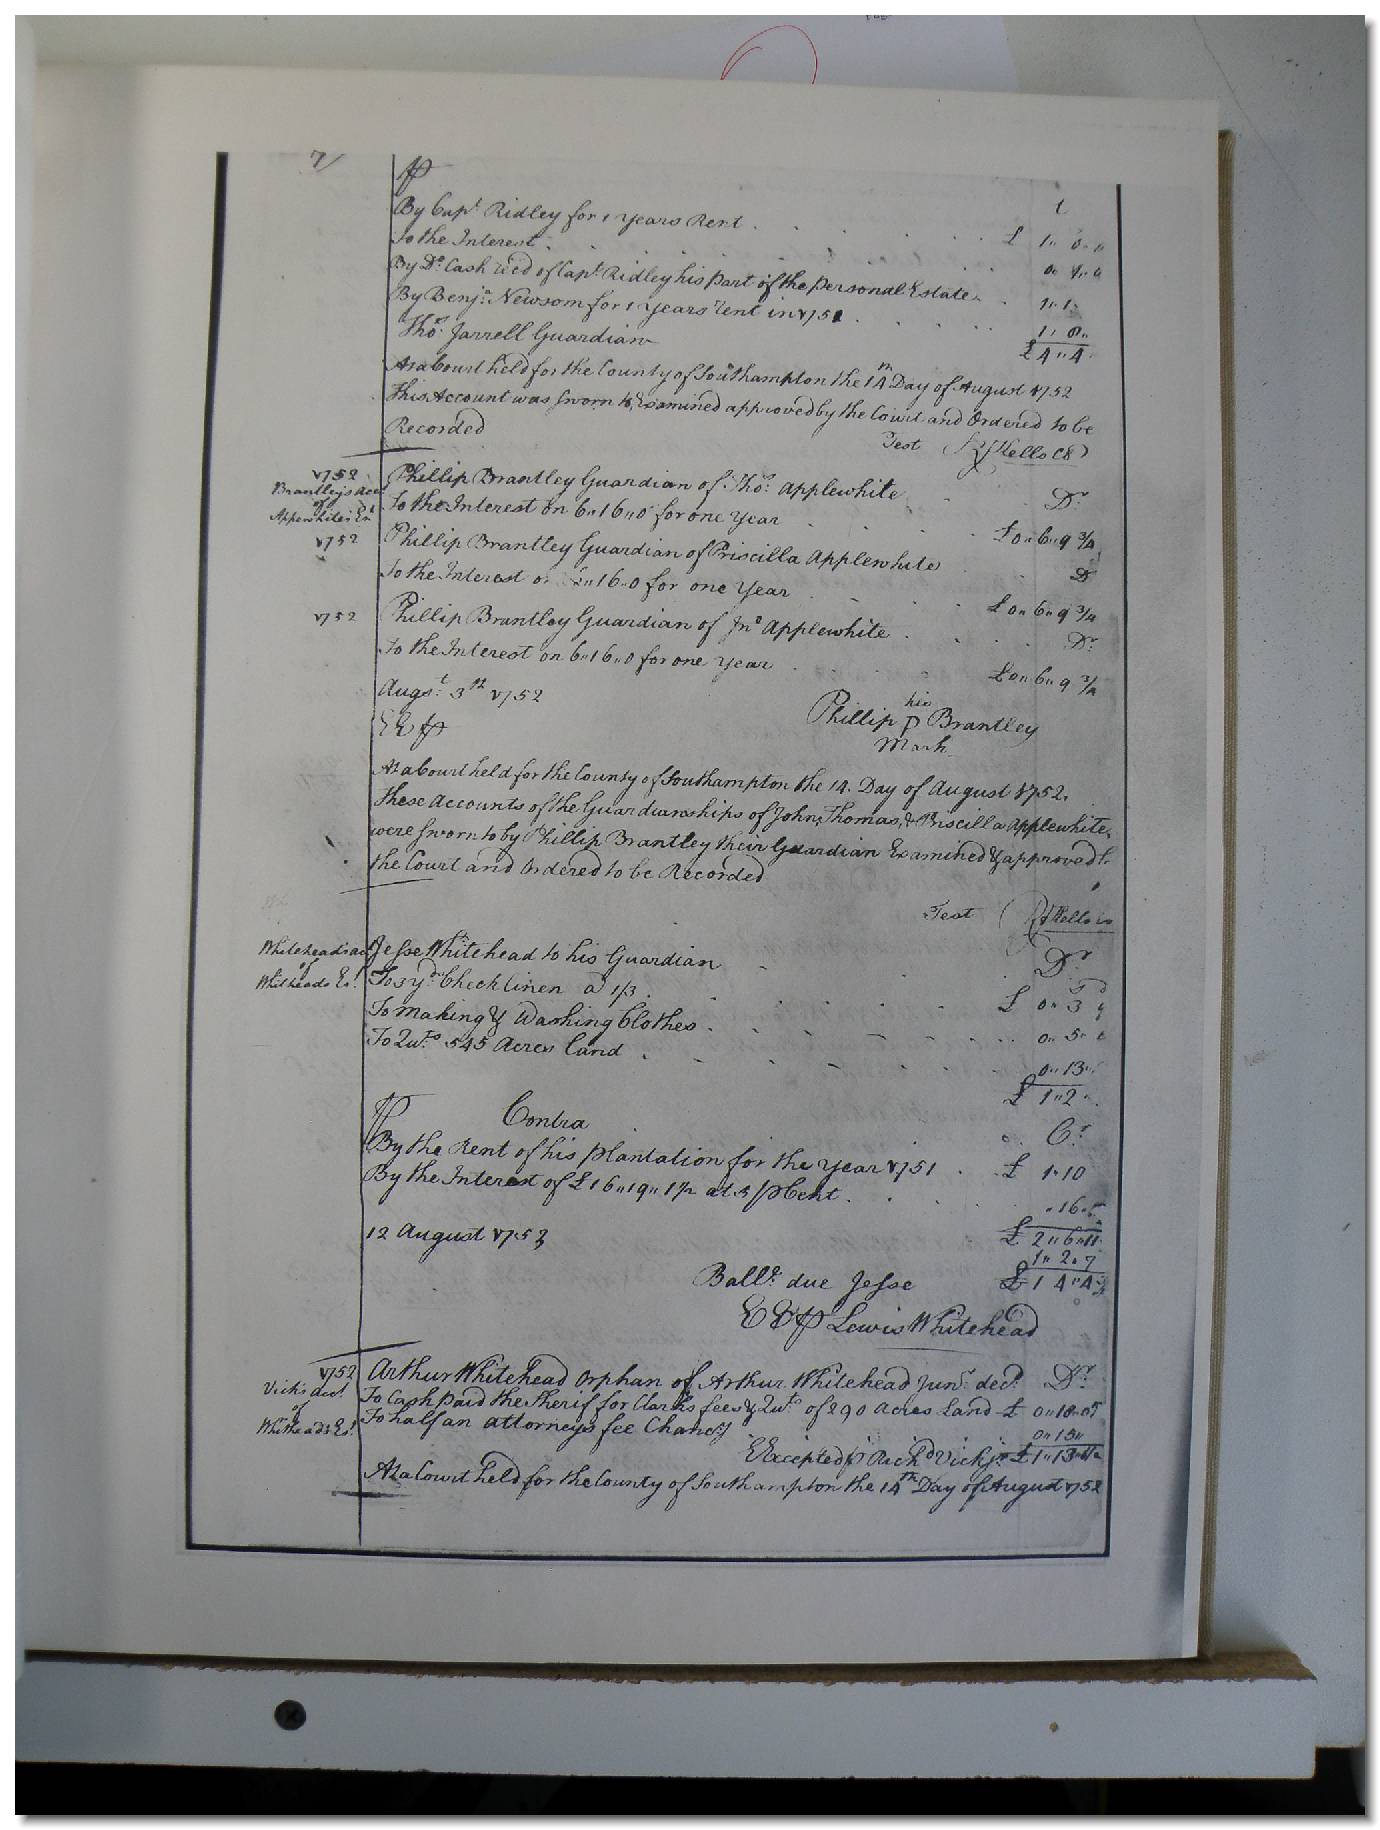 7/
By Capt. Ridley for 1 Years Rent £ 1,, 0,,
To the Interest
By Do. Cash recd of Capt. Ridley his part of the personal Estate 1,, 1
By Benjn. Newsom for 1 Years Rent in 1751 1,, 0,,
Thos. Jarrell Guardian £ 4,, 4
At a Court held for the County of Southampton the 14th Day of August 1752
This Account was Sworn to, Examined approved by the Court and Ordered to be
Recorded
Test
1752 Phillip Brantley Guardian of Thos. Applewhite Dr.
Brantley's Acct of Applewhite's Est To the Interest on 6,,16,,0 for one Year £0,,6,,9 3/4
1752 Phillip Brantley Guardian of Priscilla Applewhite Dr
To the Interest on 16,,0 for one Year £0,,6,,9 3/4
1752 Phillip Brantley Guardian of Jno Applewhite Dr.
To the Interest on 6,,16,,0 for one Year £0,,6,,9 3/4
Augst. 3rd 1752
his
Phillip P Brantley
Mark
E E P
At a Court held for the County of Southampton the 14. Day of August 1752.
These Accounts of the Guardianships of John, Thomas, & Priscilla Applewhite,
were Sworn to by Phillip Brantley their Guardian Examined & approved
the Court and Ordered to be Recorded
Test
Whitehead's acc of Whiteheads Est. Jesse Whitehead to his Guardian Dr.
To 3 yds Check linen a 1/3 £ 0,, 3 9
To Making & Washing Clothes 0,, 5,,
To Quts. 545 Acres Land 0,, 13,,
£ 1,, 2,,
P Contra Cr.
By the Rent of his plantation for the Year 1751 £ 1,,10
By the Interest of £16,,19,,1 1/2 at 5 p Cent ,,16,,
£ 2,,6,,11
12 August 1752 1,,2,,7
Ballce. due Jesse £ 1 4,,4
E E P Lewis Whitehead
1752 Arthur Whitehead Orphan of Arthur Whitehead Junr. decd. Dr.
Vick's Acct. of Whitheads Est. To Cash paid the Sherif for Clarks fees & Quts of 290 Acres Land £ 0,,18,,
To half an attorneys fee Chancy 0,,15,,
E Excepted p Richd Vick jr £1,,13,,
At a Court held for the County of Southampton the 14th Day of August 1752